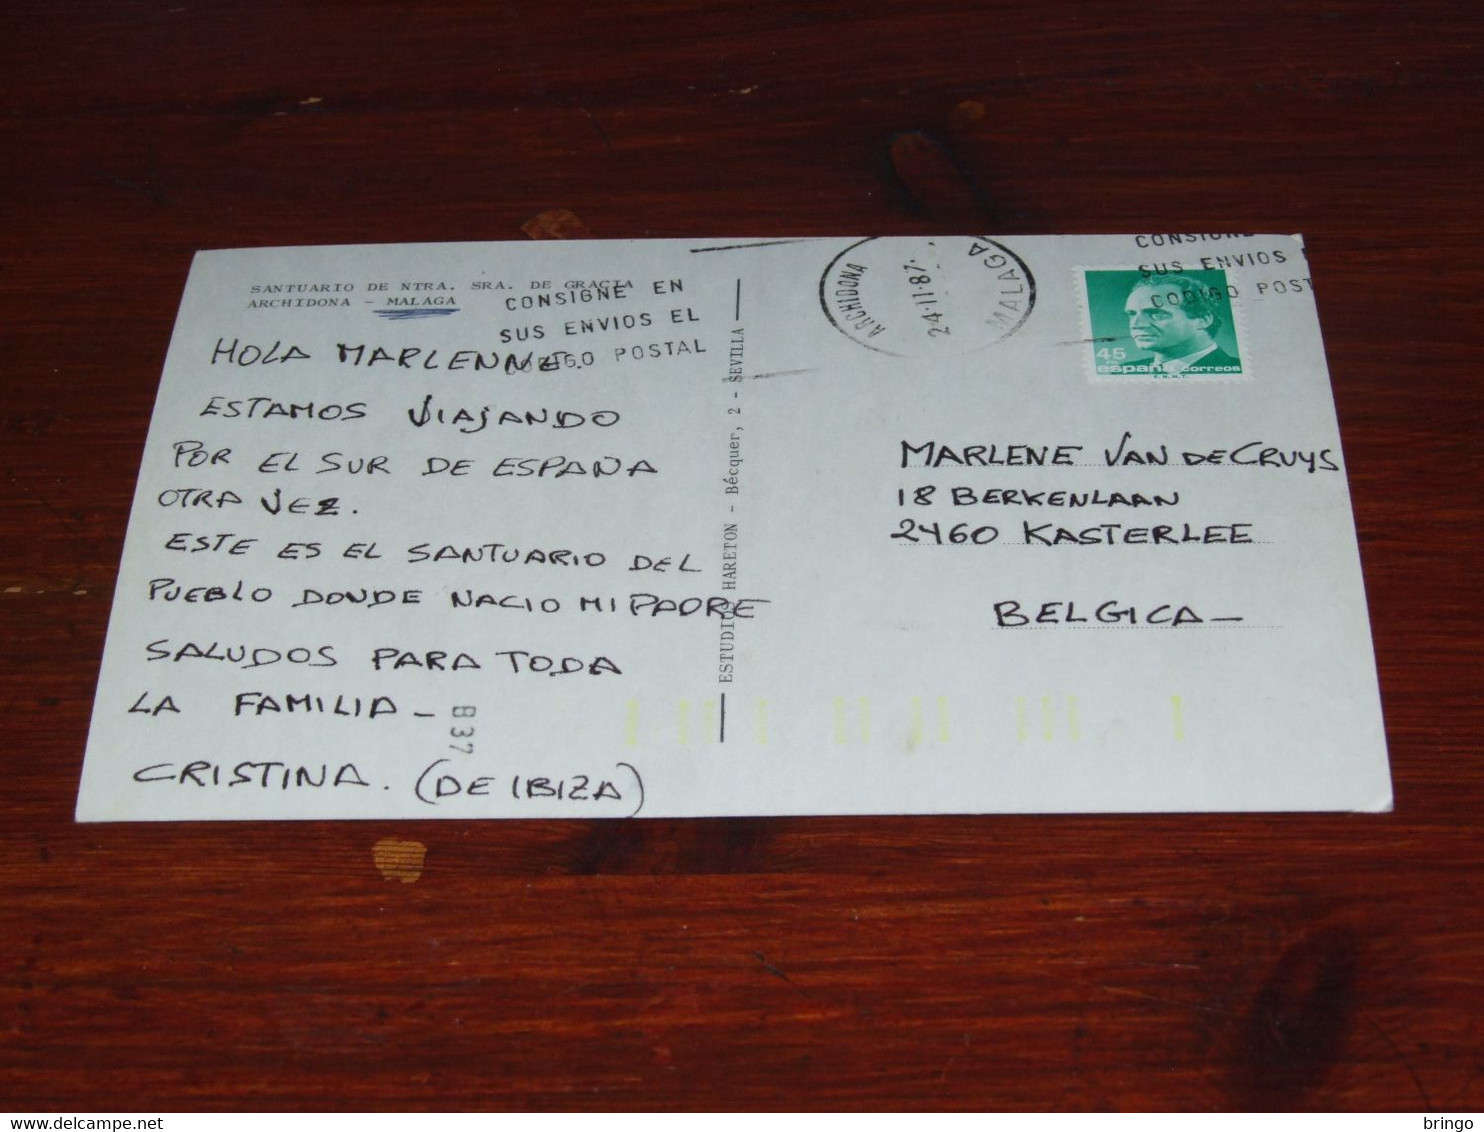 SANTUARIO DE NTRA. SRA. DE GRACIA
ARCHIDONA - MALAGA
CONSIGNE EN
SUS ENVIOS EL
CODIGO POSTAL
HOLA MARLENNE.
ESTAMOS VIAJANDO
POR EL SUR DE ESPAÑA
OTRA VEZ.
ESTE ES EL SANTUARIO DEL
PUEBLO DONDE NACIO MI PADRE
SALUDOS PARA TODA
LA FAMILIA -
B37
CRISTINA. (DE IBIZA)
ESTUDIOS HARETON - Bécquer, 2 - SEVILLA
ARCHIDONA
24.11.87
MALAGA
CONSIGNE
SUS ENVIOS
CODIGO POST
45
españa correos
F.N.M.T.
MARLENE VAN DE CRUYS
18 BERKENLAAN
2460 KASTERLEE
BELGICA -
bringo